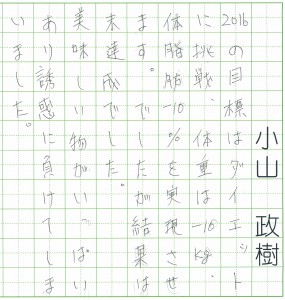 小山 政樹
2016の目標はダイエット
に挑戦、体重は-16kg、
体脂肪-10%を実現させ、
ます。でしたが結果は
末達成でした。
美味しい物がいっぱい
あり誘惑に負けてしま
いました。